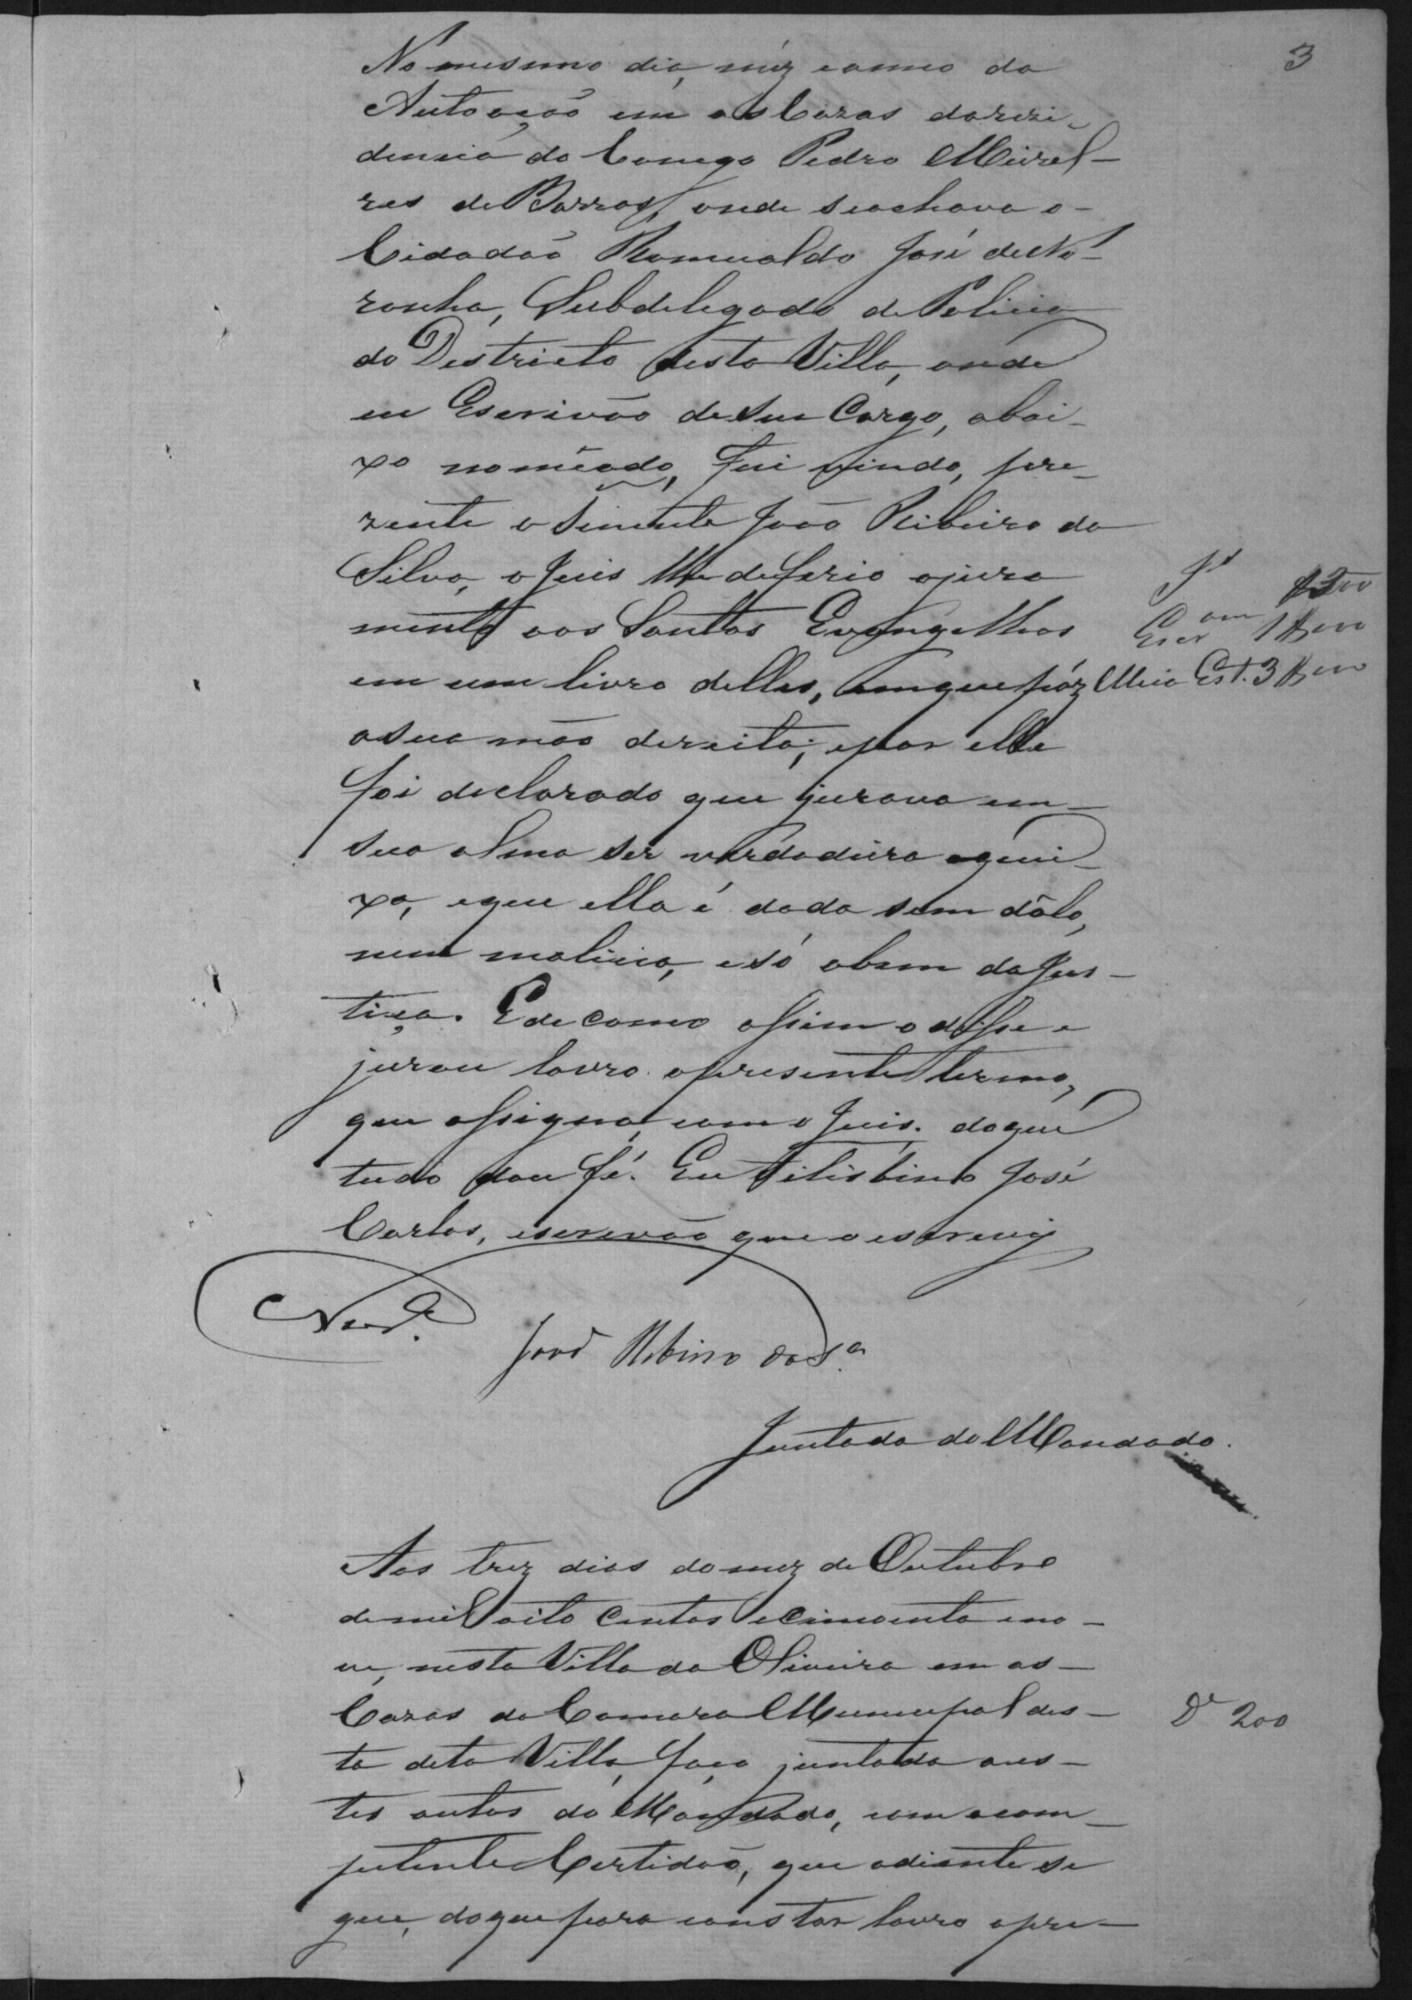 3
No mesmo dia, mêz e anno da
Autoação em as Cazas da rezi-
dencia do Conego Pedro Meirel-
res de Barros, onde se achava o
Cidadão Romualdo José de No-
ronha, Subdelegado de Policia
do Destricto desta Villa, onde
eu Escrivão de seu Cargo, abai-
xo nomêado, fui vindo, pre-
zente o Tenente João Ribeiro da
Silva, o Juis lhe deferio o jura
mento aos Santos Evangelhos
em um livro delles, em que pôz
a sua mão dereita; e por elle
foi declarado que jurava em
sua alma ser verdadeira a quei-
xa, e que ella é dada sem dólo,
nem malicia, e só a bem da Jus-
tiça. E de como assim o disse e
jurou lavro o presente termo,
que assigna com o Juis. do que
tudo dou fé. Eu Filisbino José
Carlos, escrivão que o escrevy
João Ribeiro da Sª
Juntada do Mandado.
Aos trez dias do mez de Outubro
de mil oito centos e cincoenta e no-
ve, nesta Villa da Oliveira em as
Cazas da Camara Municipal des-
ta dita Villa, faço juntada a es-
tes autos do Mandado, com a com-
petente Certidão, que adiante se
gue, do que para constar lavro o pre-
Meio Est. 3
Dº 200